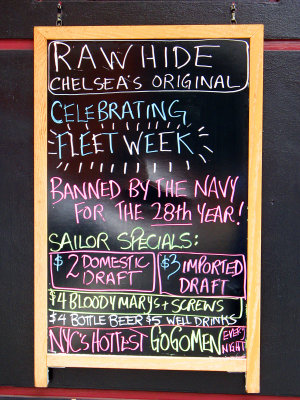 RAWHIDE
CHELSEA'S ORIGINAL
CELEBRATING
FLEET WEEK
BANNED BY THE NAVY
FOR THE 28th YEAR!
SAILOR SPECIALS:
$2 DOMESTIC DRAFT
$3 IMPORTED DRAFT
$4 BLOODY MARYS + SCREWS
$4 BOTTLE BEER $5 WELL DRINKS
NYC'S HOTTEST GOGOMEN EVERY NIGHT